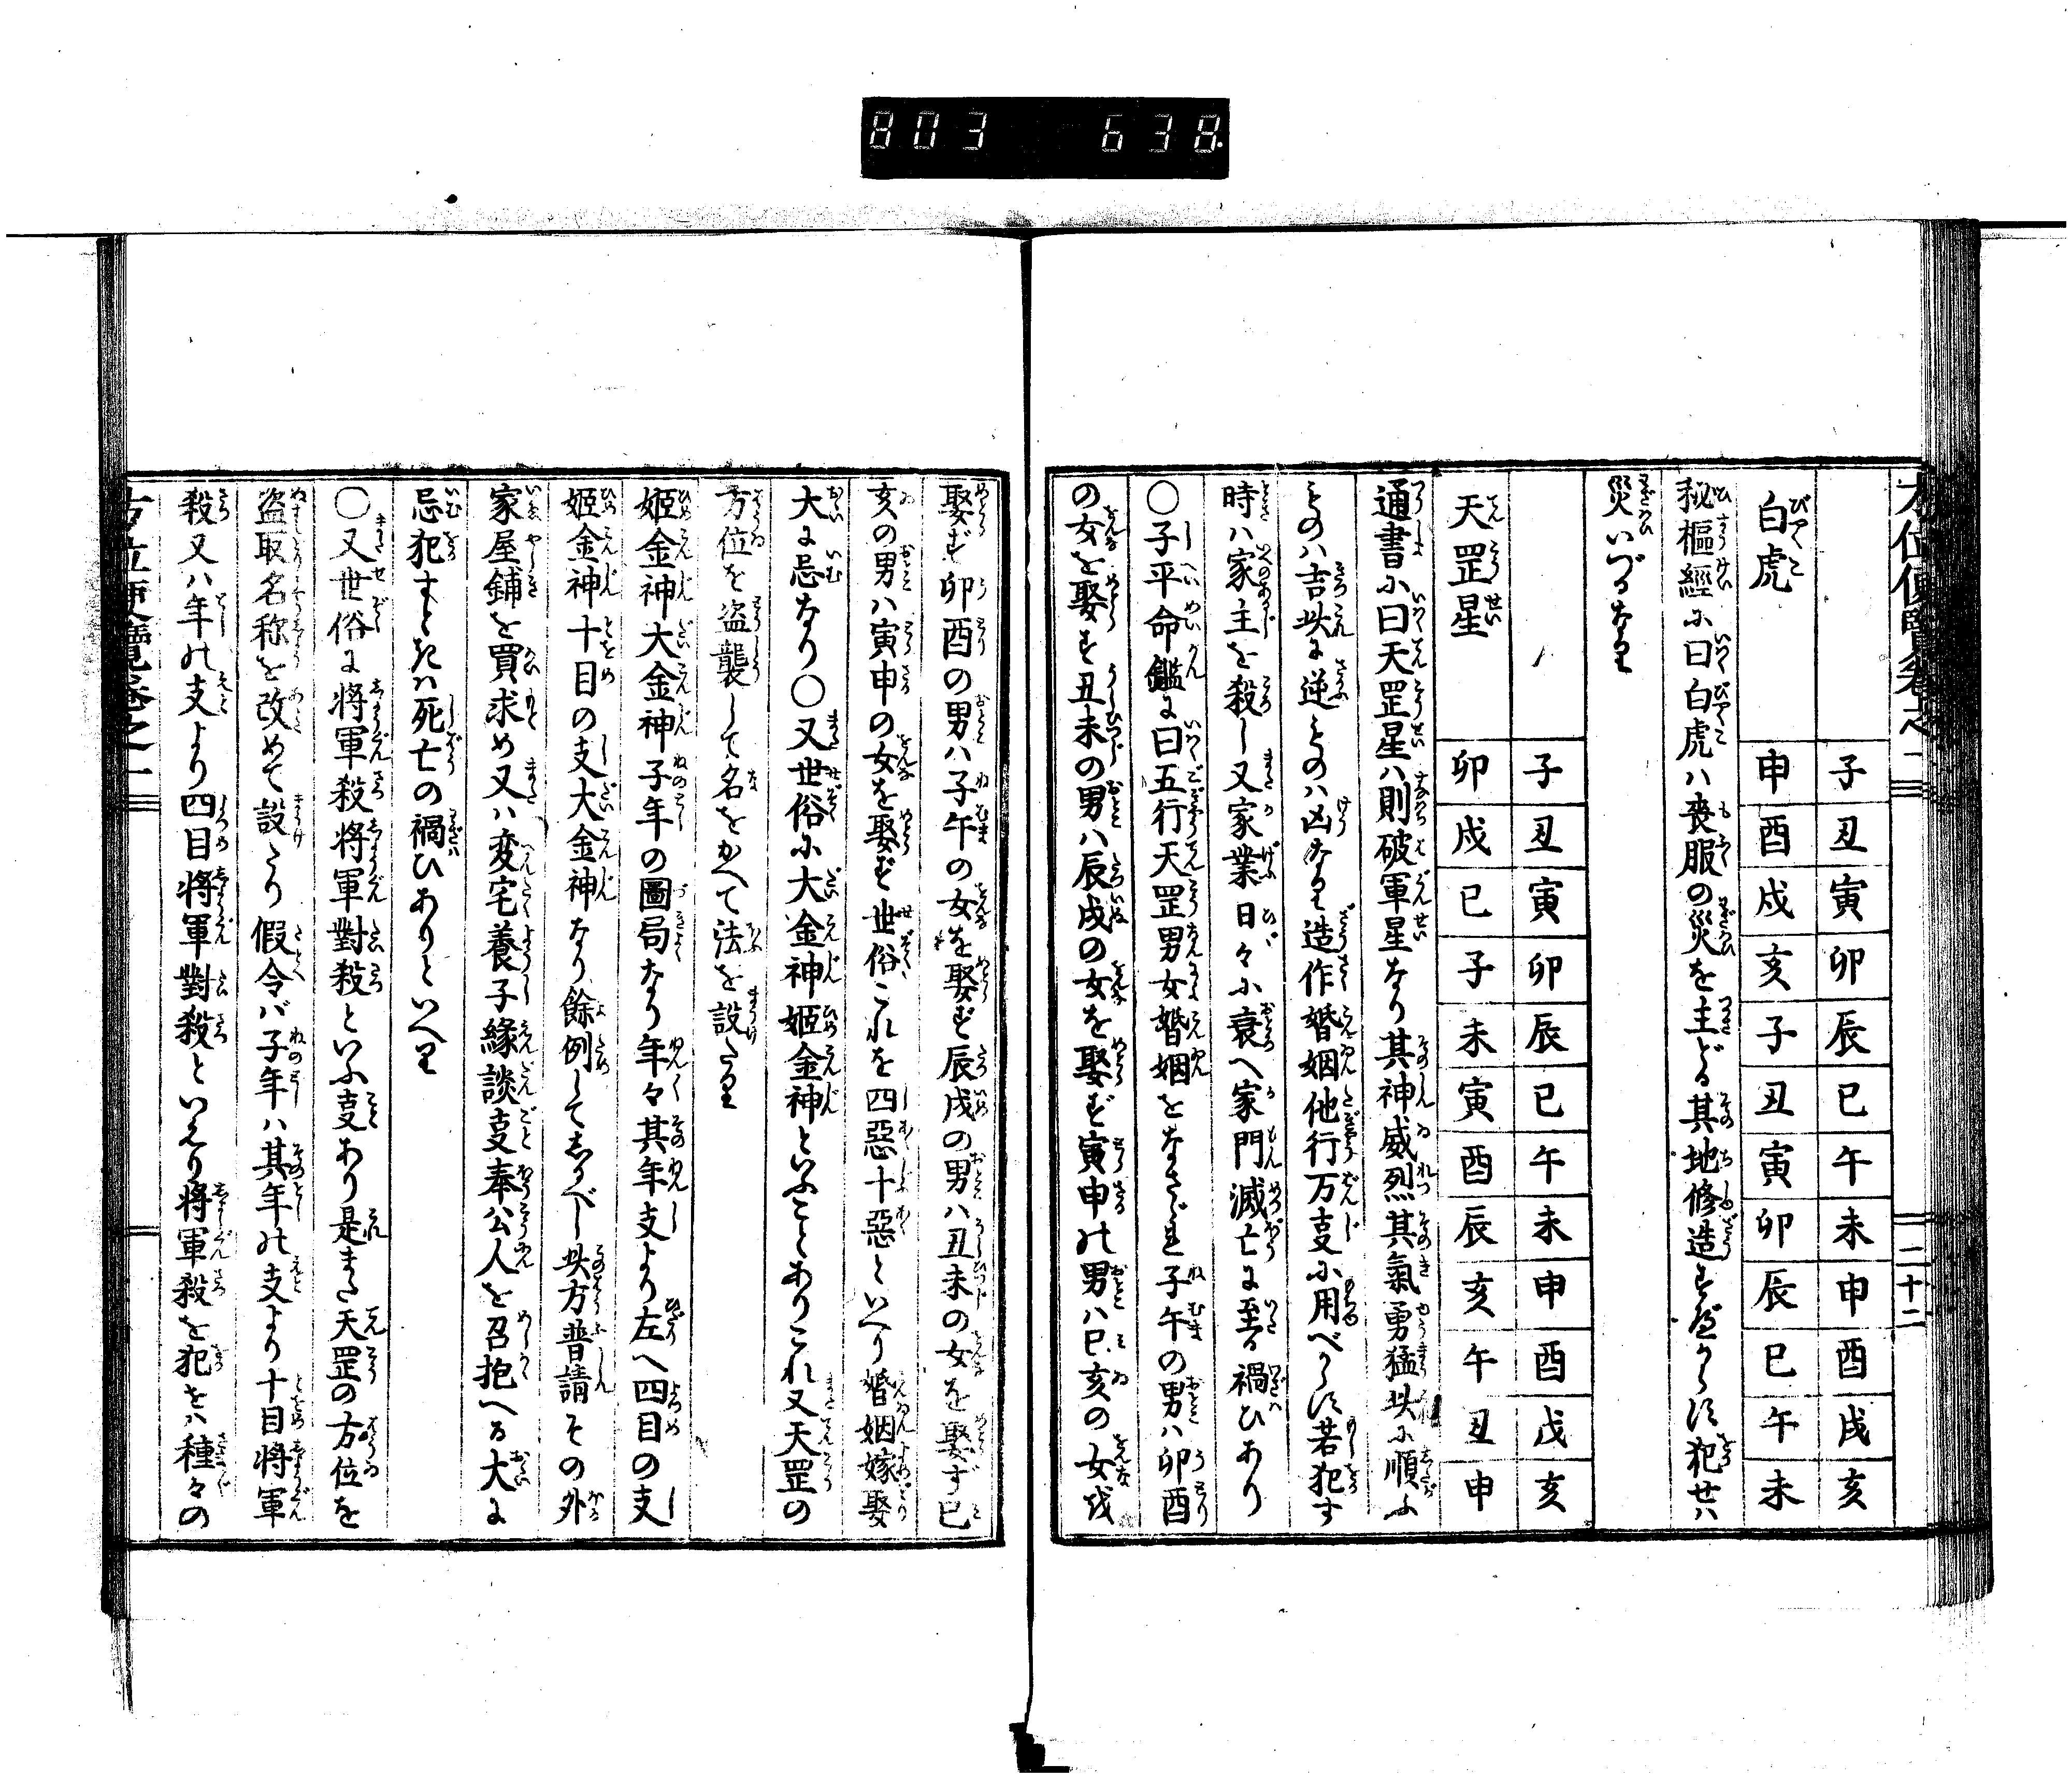 803 638
方位便覧巻之一 二十二
子丑寅卯辰巳午未申酉戌亥
白虎 申酉戌亥子丑寅卯辰巳午未
秘樞經に曰白虎ハ喪服の災を主どる其地修造すべからず犯せハ
災いづるなり
子丑寅卯辰巳午未申酉戌亥
天罡星 卯戌巳子未寅酉辰亥午丑申
通書に曰天罡星ハ則破軍星なり其神威烈其氣勇猛此に順ふ
ものハ吉此に逆ものハ凶なり造作婚姻他行万叓に用べからず若犯す
時ハ家主を殺し又家業日々に衰へ家門滅亡に至る禍ひあり
〇子平命鑑に曰五行天罡男女婚姻をなさざれ子午の男ハ卯酉
の女を娶ず丑未の男ハ辰戌の女を娶ず寅申の男ハ巳亥の女を
娶ず卯酉の男ハ子午の女を娶ず辰戌の男ハ丑未の女を娶ず巳
亥の男ハ寅申の女を娶ず世俗これを四惡十惡といへり婚姻嫁娶
大に忌なり〇又世俗に大金神姫金神といふことありこれ又天罡の
方位を盗襲して名をかへて法を設たり
姫金神大金神子年の圖局なり年々其年支より左へ四目の支
姫金神十目の支大金神なり餘例してしるべし此方普請その外
家屋鋪を買求め又ハ変宅養子縁談叓奉公人を召抱へる大に
忌犯すときハ死亡の禍ひありといへり
〇又世俗に将軍殺将軍對殺といふ叓あり是また天罡の方位を
盗取名称を改めて設たり假令バ子年ハ其年の支より十目将軍
殺又ハ年の支より四目将軍對殺といえり将軍殺を犯せハ種々の
方位便覧巻之一